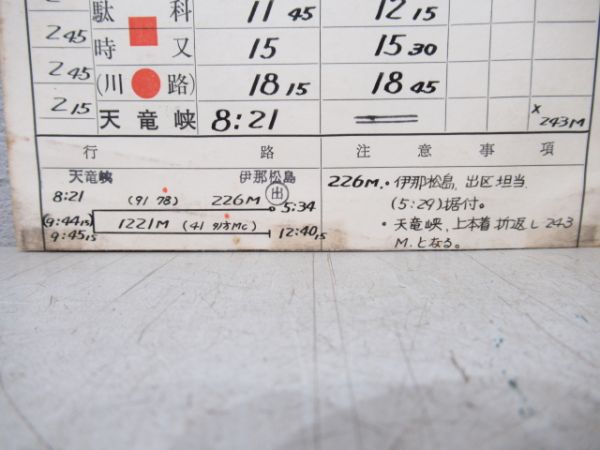 駄科 11 45 12 15
2 45
時又 15 15 30
2 45
(川路) 18 15 18 45
2 15
天竜峡 8:21 × 243M
行路 注意事項
天竜峡 伊那松島
8:21 (91 78) 226M 出 5:34
(9:44 15) 1221M
9:45 15 12:40 15
226M.・伊那松島,出区担当
(5:29)据付。
・天竜峡,上本着折返し243
M.となる。